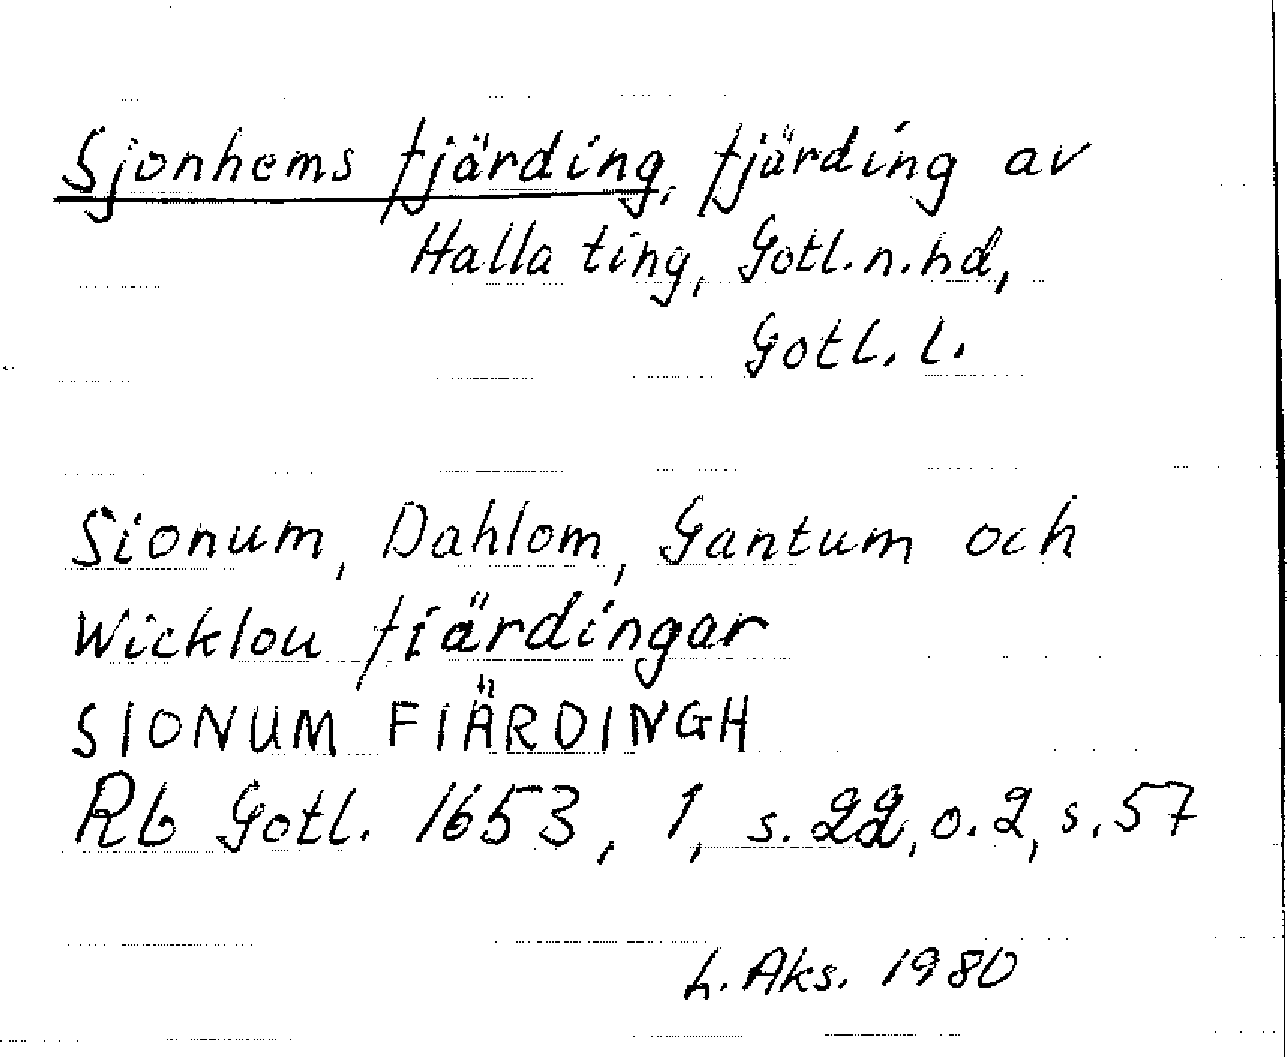 Sjonhems fjärding, fjärding av
Halla ting, Gotl. n. hd,
Gotl. l.
Sionum, Dahlom, Gantum och
Wicklou fiärdingar
SIONUM FIÄRDINGH
Rb Gotl. 1653, 1, s. 22, o. 2, s. 57
L. Aks. 1980